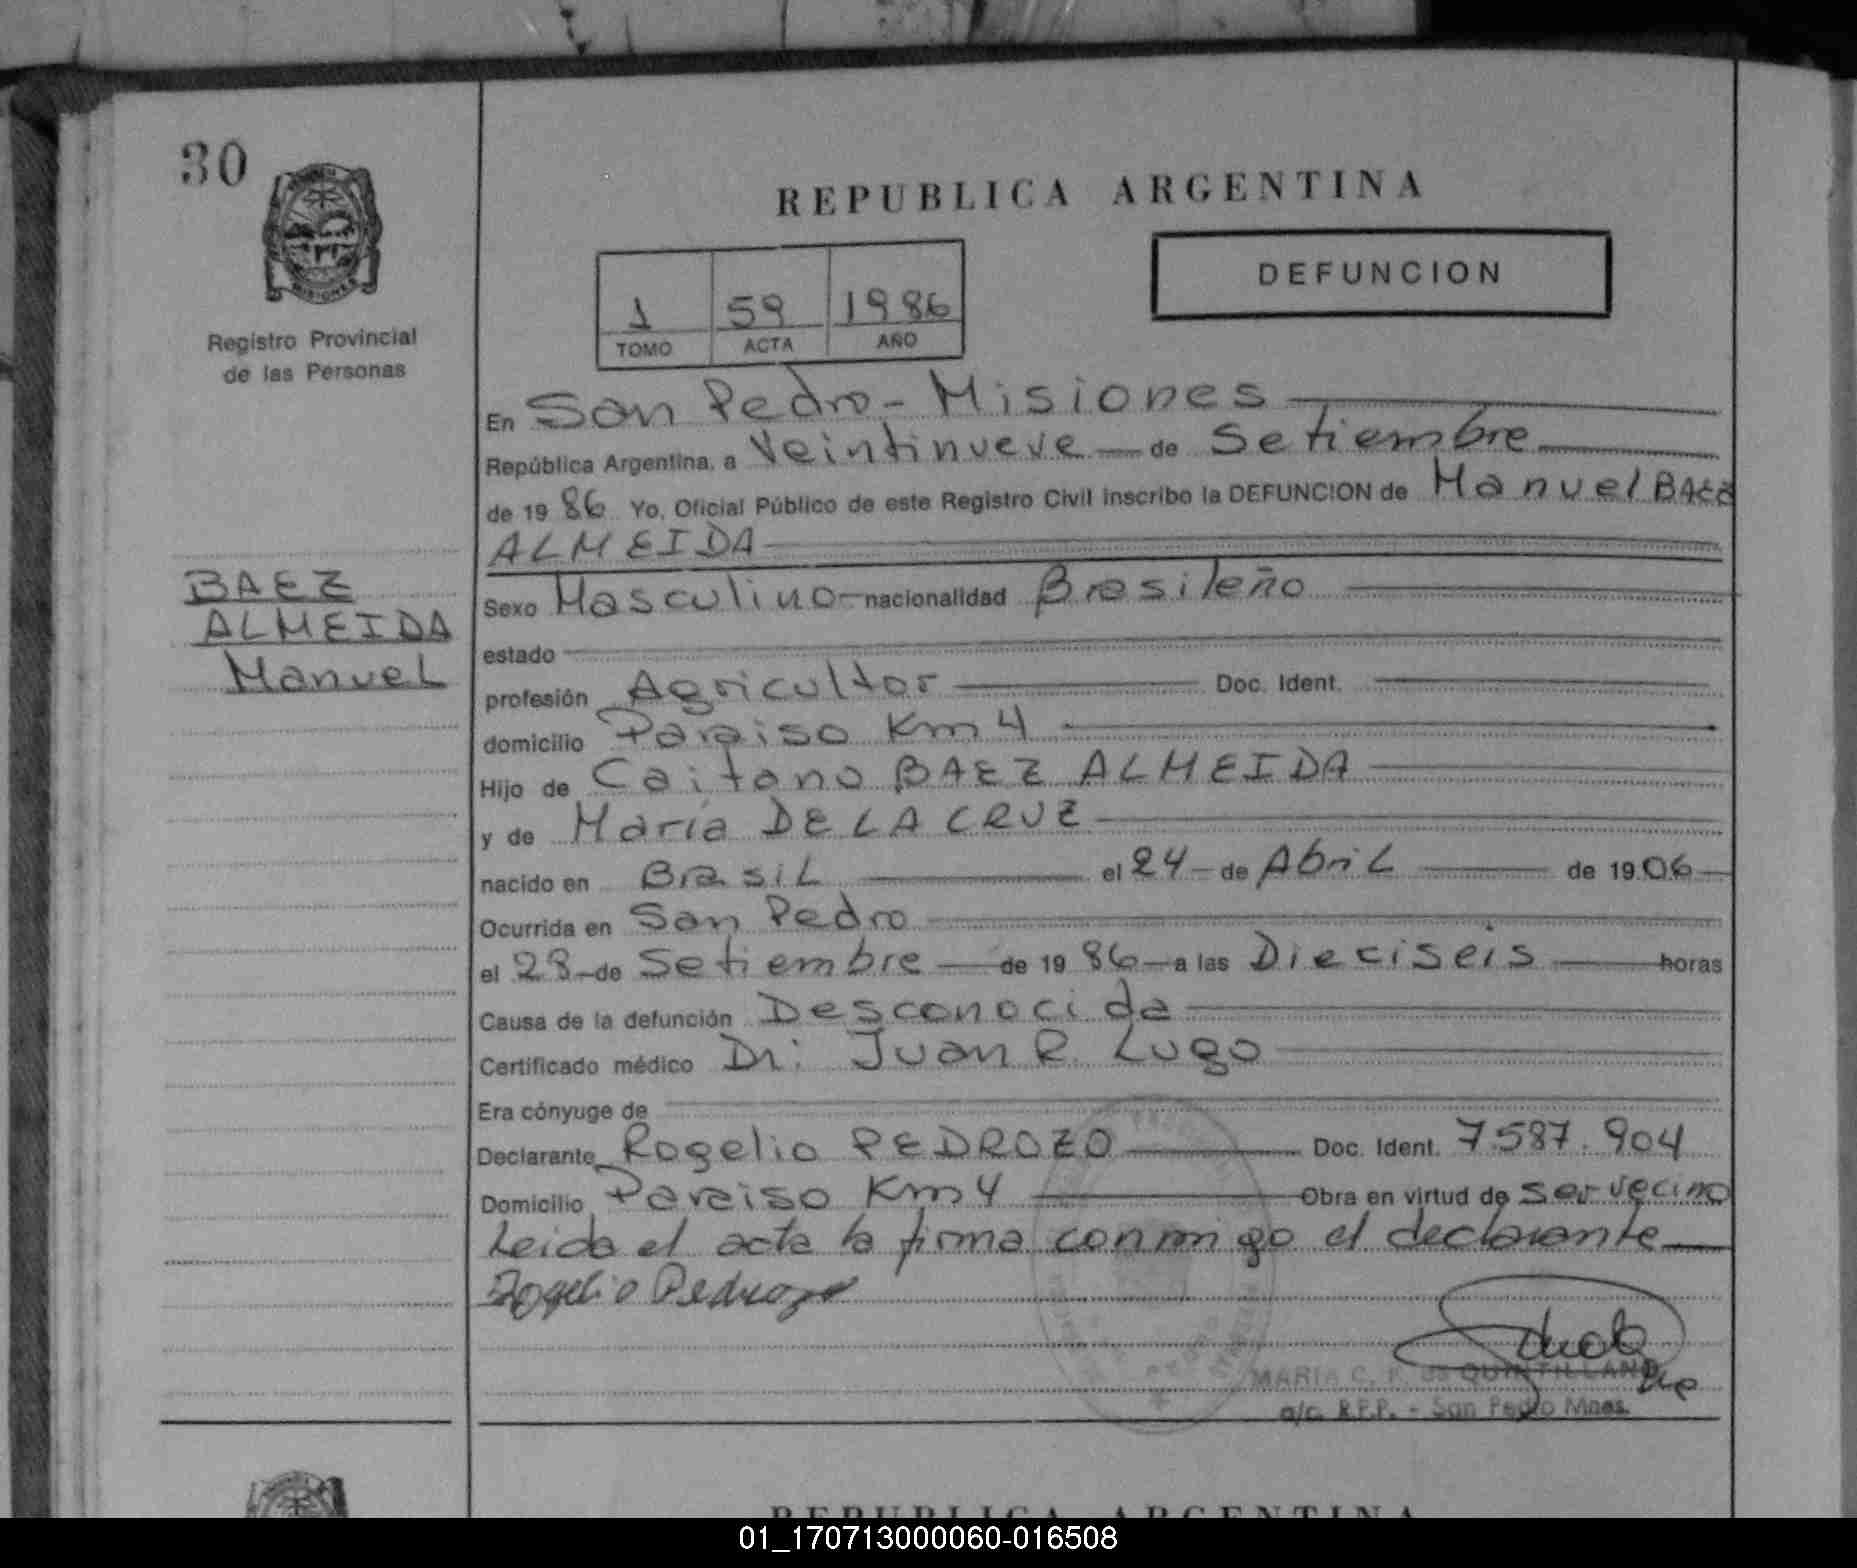 30
MISIONES
Registro Provincial
de las Personas
REPUBLICA ARGENTINA
1 59 1986
TOMO ACTA AÑO
DEFUNCION
En San Pedro - Misiones
República Argentina, a Veintinueve de Setiembre
de 1986 Yo, Oficial Público de este Registro Civil inscribo la DEFUNCION de Manuel BAEZ
ALMEIDA
BAEZ
ALMEIDA
Manuel
Sexo Masculino nacionalidad Brasileño
estado
profesión Agricultor Doc. Ident.
domicilio Paraiso Km 4
Hijo de Caitano BAEZ ALMEIDA
y de María DE LA CRUZ
nacido en Brasil el 24 de Abril de 1906
Ocurrida en San Pedro
el 28 de Setiembre de 1986 a las Dieciseis horas
Causa de la defunción Desconocida
Certificado médico Dr: Juan R. Lugo
Era cónyuge de
Declarante Rogelio PEDROZO Doc. Ident. 7.587.904
Domicilio Paraiso Km 4 Obra en virtud de ser vecino
Leida el acta la firma conmigo el declarante
Rogelio Pedrozo
MARIA C. F. de QUINTILLANO
a/c. R.P.P. - San Pedro Mnes.
REPUBLICA ARGENTINA
01_170713000060-016508